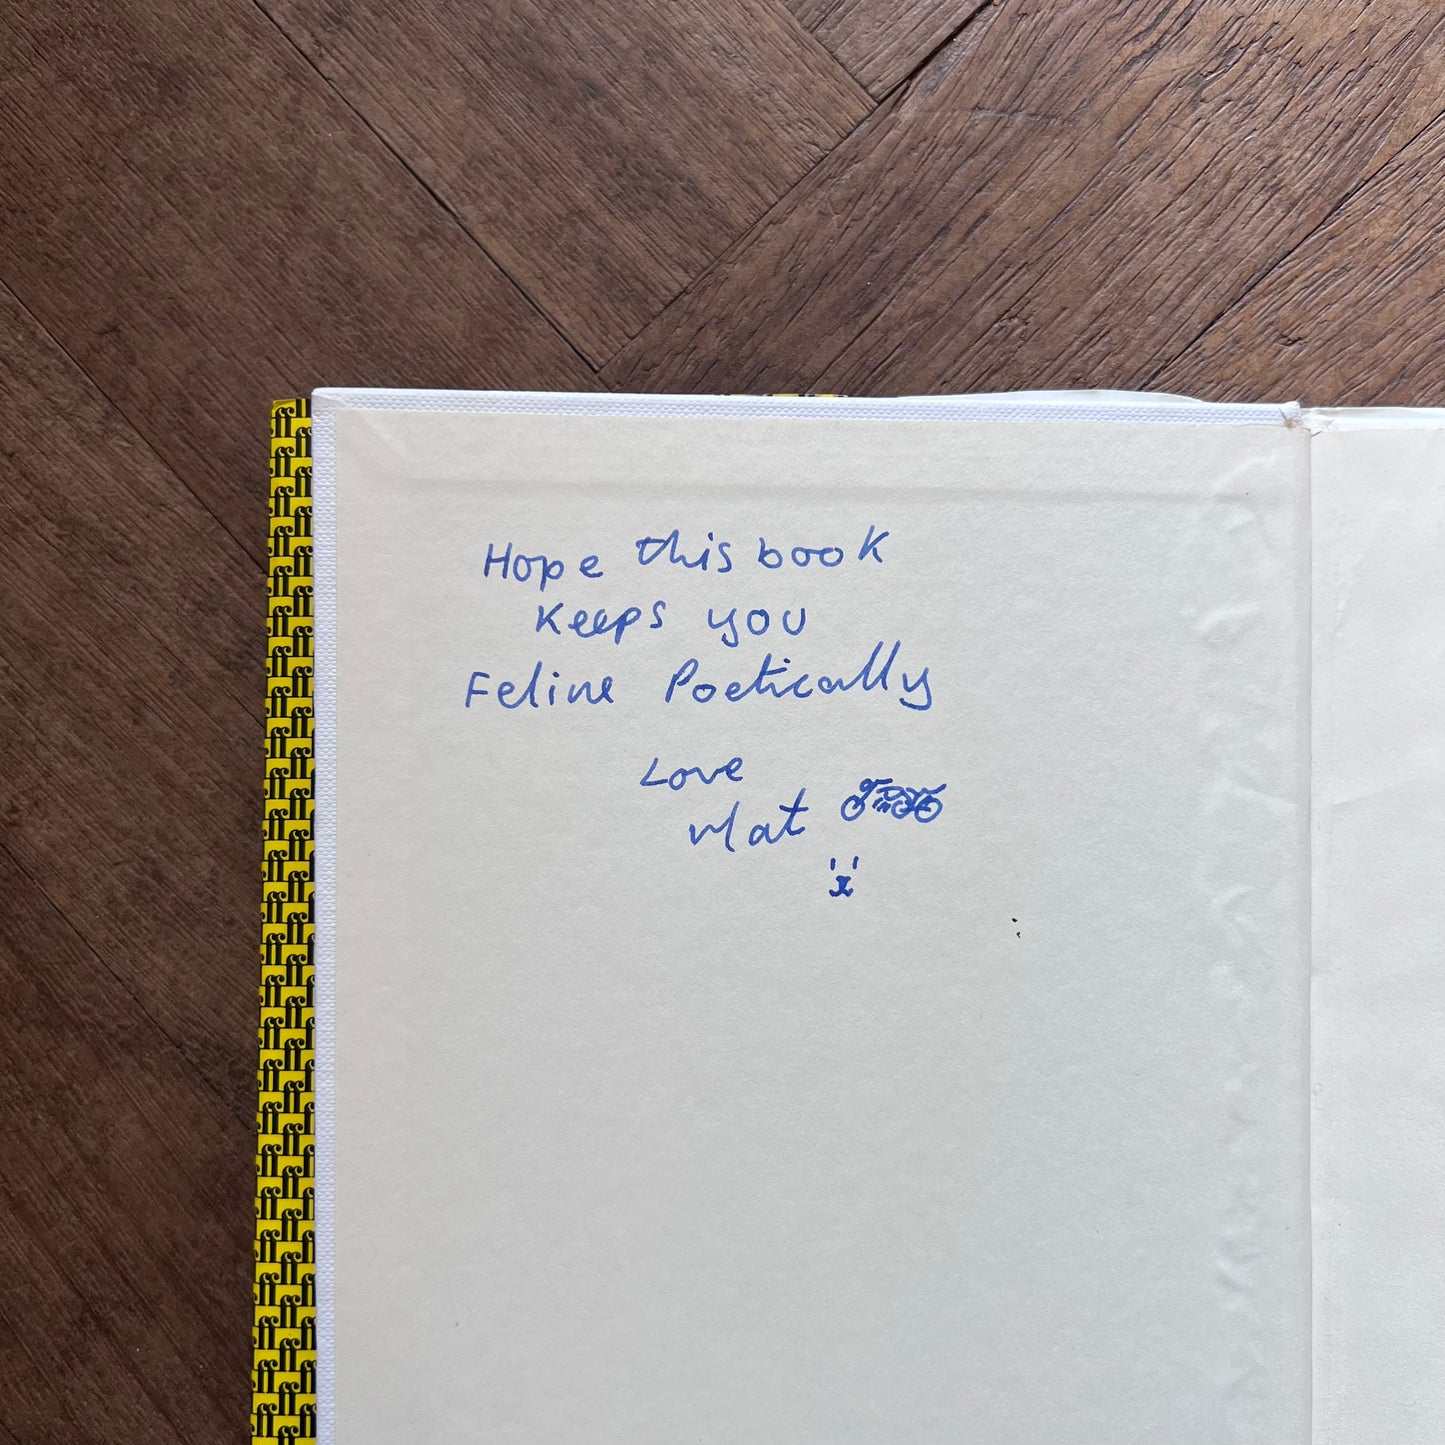 Hope this book
keeps you
Feline Poetically
Love
Mat
x